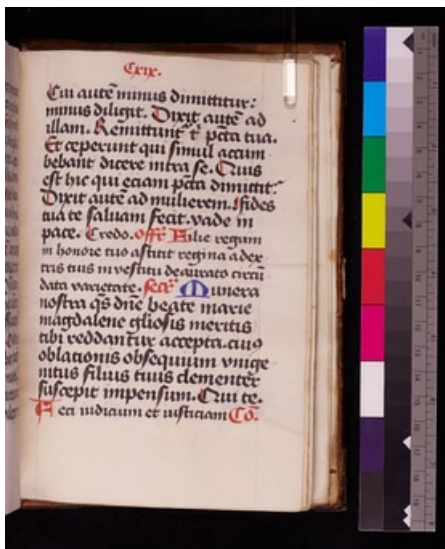 Cxix.
Cui autē minus dimittitur:
minus diligit. Dixit autē ad
illam. Remittunt᷑ t᷑ pctā tua.
Et ceperunt qui simul accum
bebant dicere intra se. Quis
est hic qui eciam pctā dimittit᷑
Dixit autē ad mulierem. fides
tua te saluam fecit. vade in
pace. Credo. offr̄ Filie regum
in honore tuo astitit regina a dex
tris tuis in vestitu deaurato circū
data varietate. secr̄ Munera
nostra qs̄ dn̄e beate marie
magdalene gliosis meritis
tibi reddantur accepta. cuiꝰ
oblationis obsequium vnige
nitus filius tuus clementer
suscepit impensum. Qui te.
Feci iudicium et iusticiam Cō.